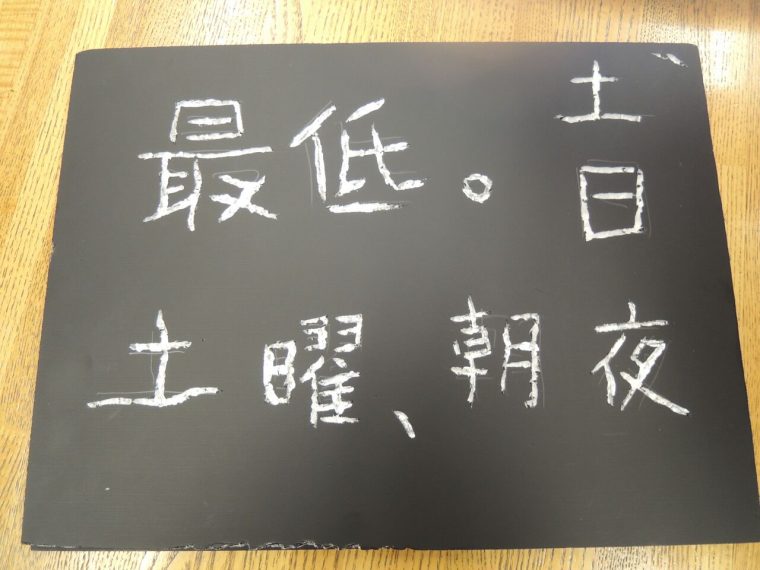 最低。土日
土曜、朝夜